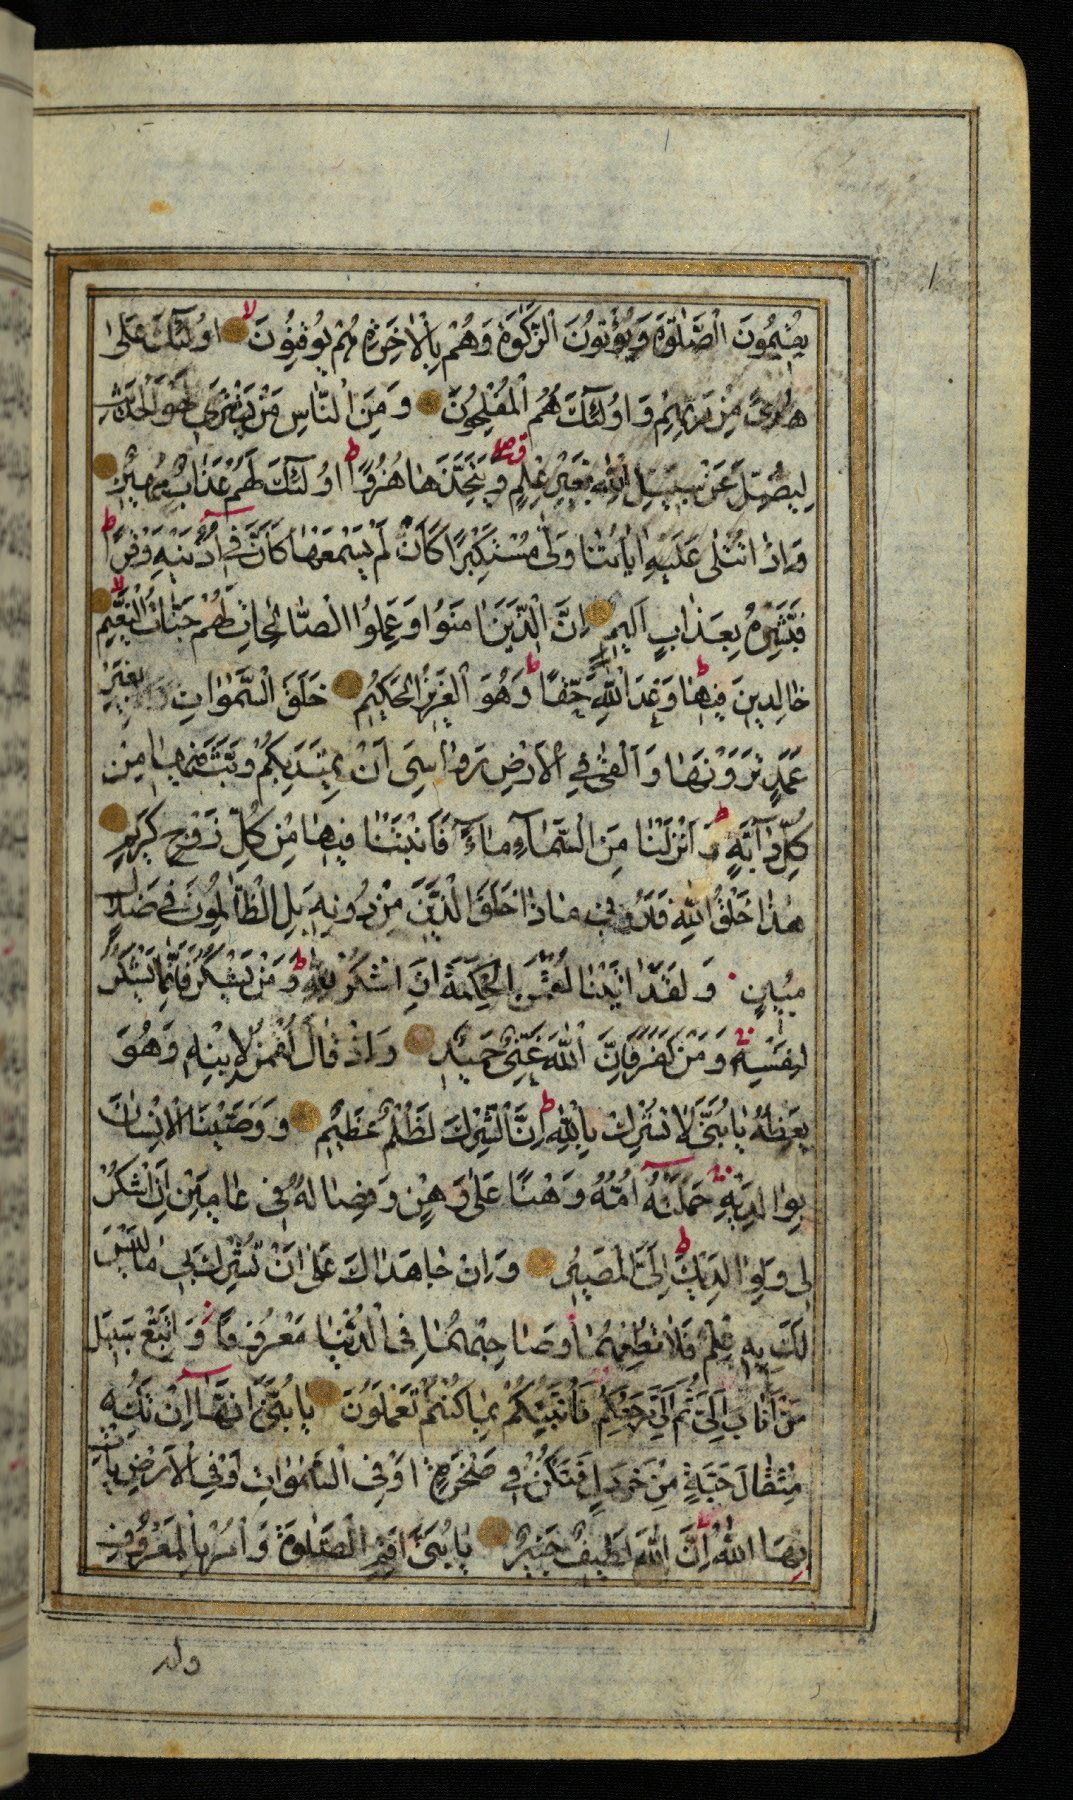 يُقِيمُونَ الْصَّلٰوةَ وَيُؤْتُونَ الْزَّكَوٰةَ وَهُمْ بِالْاٰخِرَةِ هُمْ يُوقِنُونَ لا اُولٰئِكَ عَلٰى
هُدًى مِنْ رَبِّهِمْ وَاُولٰئِكَ هُمُ الْمُفْلِحُونَ وَمِنَ الْنَّاسِ مَنْ يَشْتَرِى لَهْوَ الْحَدِيثِ
لِيُضِلَّ عَنْ سَبِيلِ اللّٰهِ بِغَيْرِ عِلْمٍ وَيَتَّخِذَهَا هُزُوًا ط اُولٰئِكَ لَهُمْ عَذَابٌ مُهِينٌ
وَاِذَا تُتْلٰى عَلَيْهِ اٰيَاتُنَا وَلّٰى مُسْتَكْبِرًا كَاَنْ لَمْ يَسْمَعْهَا كَاَنَّ فِى اُذُنَيْهِ وَقْرًا ط
فَبَشِّرْهُ بِعَذَابٍ اَلِيمٍ اِنَّ الَّذِينَ اٰمَنُوا وَعَمِلُوا الْصَّالِحَاتِ لَهُمْ جَنَّاتُ الْنَّعِيمِ لا
خَالِدِينَ فِيهَا ط وَعْدَ اللّٰهِ حَقًّا ط وَهُوَ الْعَزِيزُ الْحَكِيمُ خَلَقَ الْسَّمٰوَاتِ بِغَيْرِ
عَمَدٍ تَرَوْنَهَا وَاَلْقٰى فِى الْاَرْضِ رَوَاسِىَ اَنْ تَمِيدَ بِكُمْ وَبَثَّ فِيهَا مِنْ
كُلِّ دَابَّةٍ ط وَاَنْزَلْنَا مِنَ الْسَّمَآءِ مَآءً فَاَنْبَتْنَا فِيهَا مِنْ كُلِّ زَوْجٍ كَرِيمٍ
هٰذَا خَلْقُ اللّٰهِ فَاَرُونِى مَاذَا خَلَقَ الَّذِينَ مِنْ دُونِهِ بَلِ الْظَّالِمُونَ فِى ضَلَالٍ
مُبِينٍ وَلَقَدْ اٰتَيْنَا لُقْمٰنَ الْحِكْمَةَ اَنِ اشْكُرْ لِلّٰهِ ط وَمَنْ يَشْكُرْ فَاِنَّمَا يَشْكُرُ
لِنَفْسِهِ وَمَنْ كَفَرَ فَاِنَّ اللّٰهَ غَنِىٌّ حَمِيدٌ وَاِذْ قَالَ لُقْمٰنُ لِابْنِهِ وَهُوَ
يَعِظُهُ يَا بُنَىَّ لَا تُشْرِكْ بِاللّٰهِ ط اِنَّ الْشِّرْكَ لَظُلْمٌ عَظِيمٌ وَوَصَّيْنَا الْاِنْسَانَ
بِوَالِدَيْهِ حَمَلَتْهُ اُمُّهُ وَهْنًا عَلٰى وَهْنٍ وَفِصَالُهُ فِى عَامَيْنِ اَنِ اشْكُرْ
لِى وَلِوَالِدَيْكَ ط اِلَىَّ الْمَصِيرُ وَاِنْ جَاهَدَاكَ عَلٰى اَنْ تُشْرِكَ بِى مَا لَيْسَ
لَكَ بِهِ عِلْمٌ فَلَا تُطِعْهُمَا وَصَاحِبْهُمَا فِى الْدُّنْيَا مَعْرُوفًا وَاتَّبِعْ سَبِيلَ
مَنْ اَنَابَ اِلَىَّ ثُمَّ اِلَىَّ مَرْجِعُكُمْ فَاُنَبِّئُكُمْ بِمَا كُنْتُمْ تَعْمَلُونَ يَا بُنَىَّ اِنَّهَا اِنْ تَكُ
مِثْقَالَ حَبَّةٍ مِنْ خَرْدَلٍ فَتَكُنْ فِى صَخْرَةٍ اَوْ فِى الْسَّمٰوَاتِ اَوْ فِى الْاَرْضِ يَاْتِ
بِهَا اللّٰهُ اِنَّ اللّٰهَ لَطِيفٌ خَبِيرٌ يَا بُنَىَّ اَقِمِ الْصَّلٰوةَ وَاْمُرْ بِالْمَعْرُوفِ